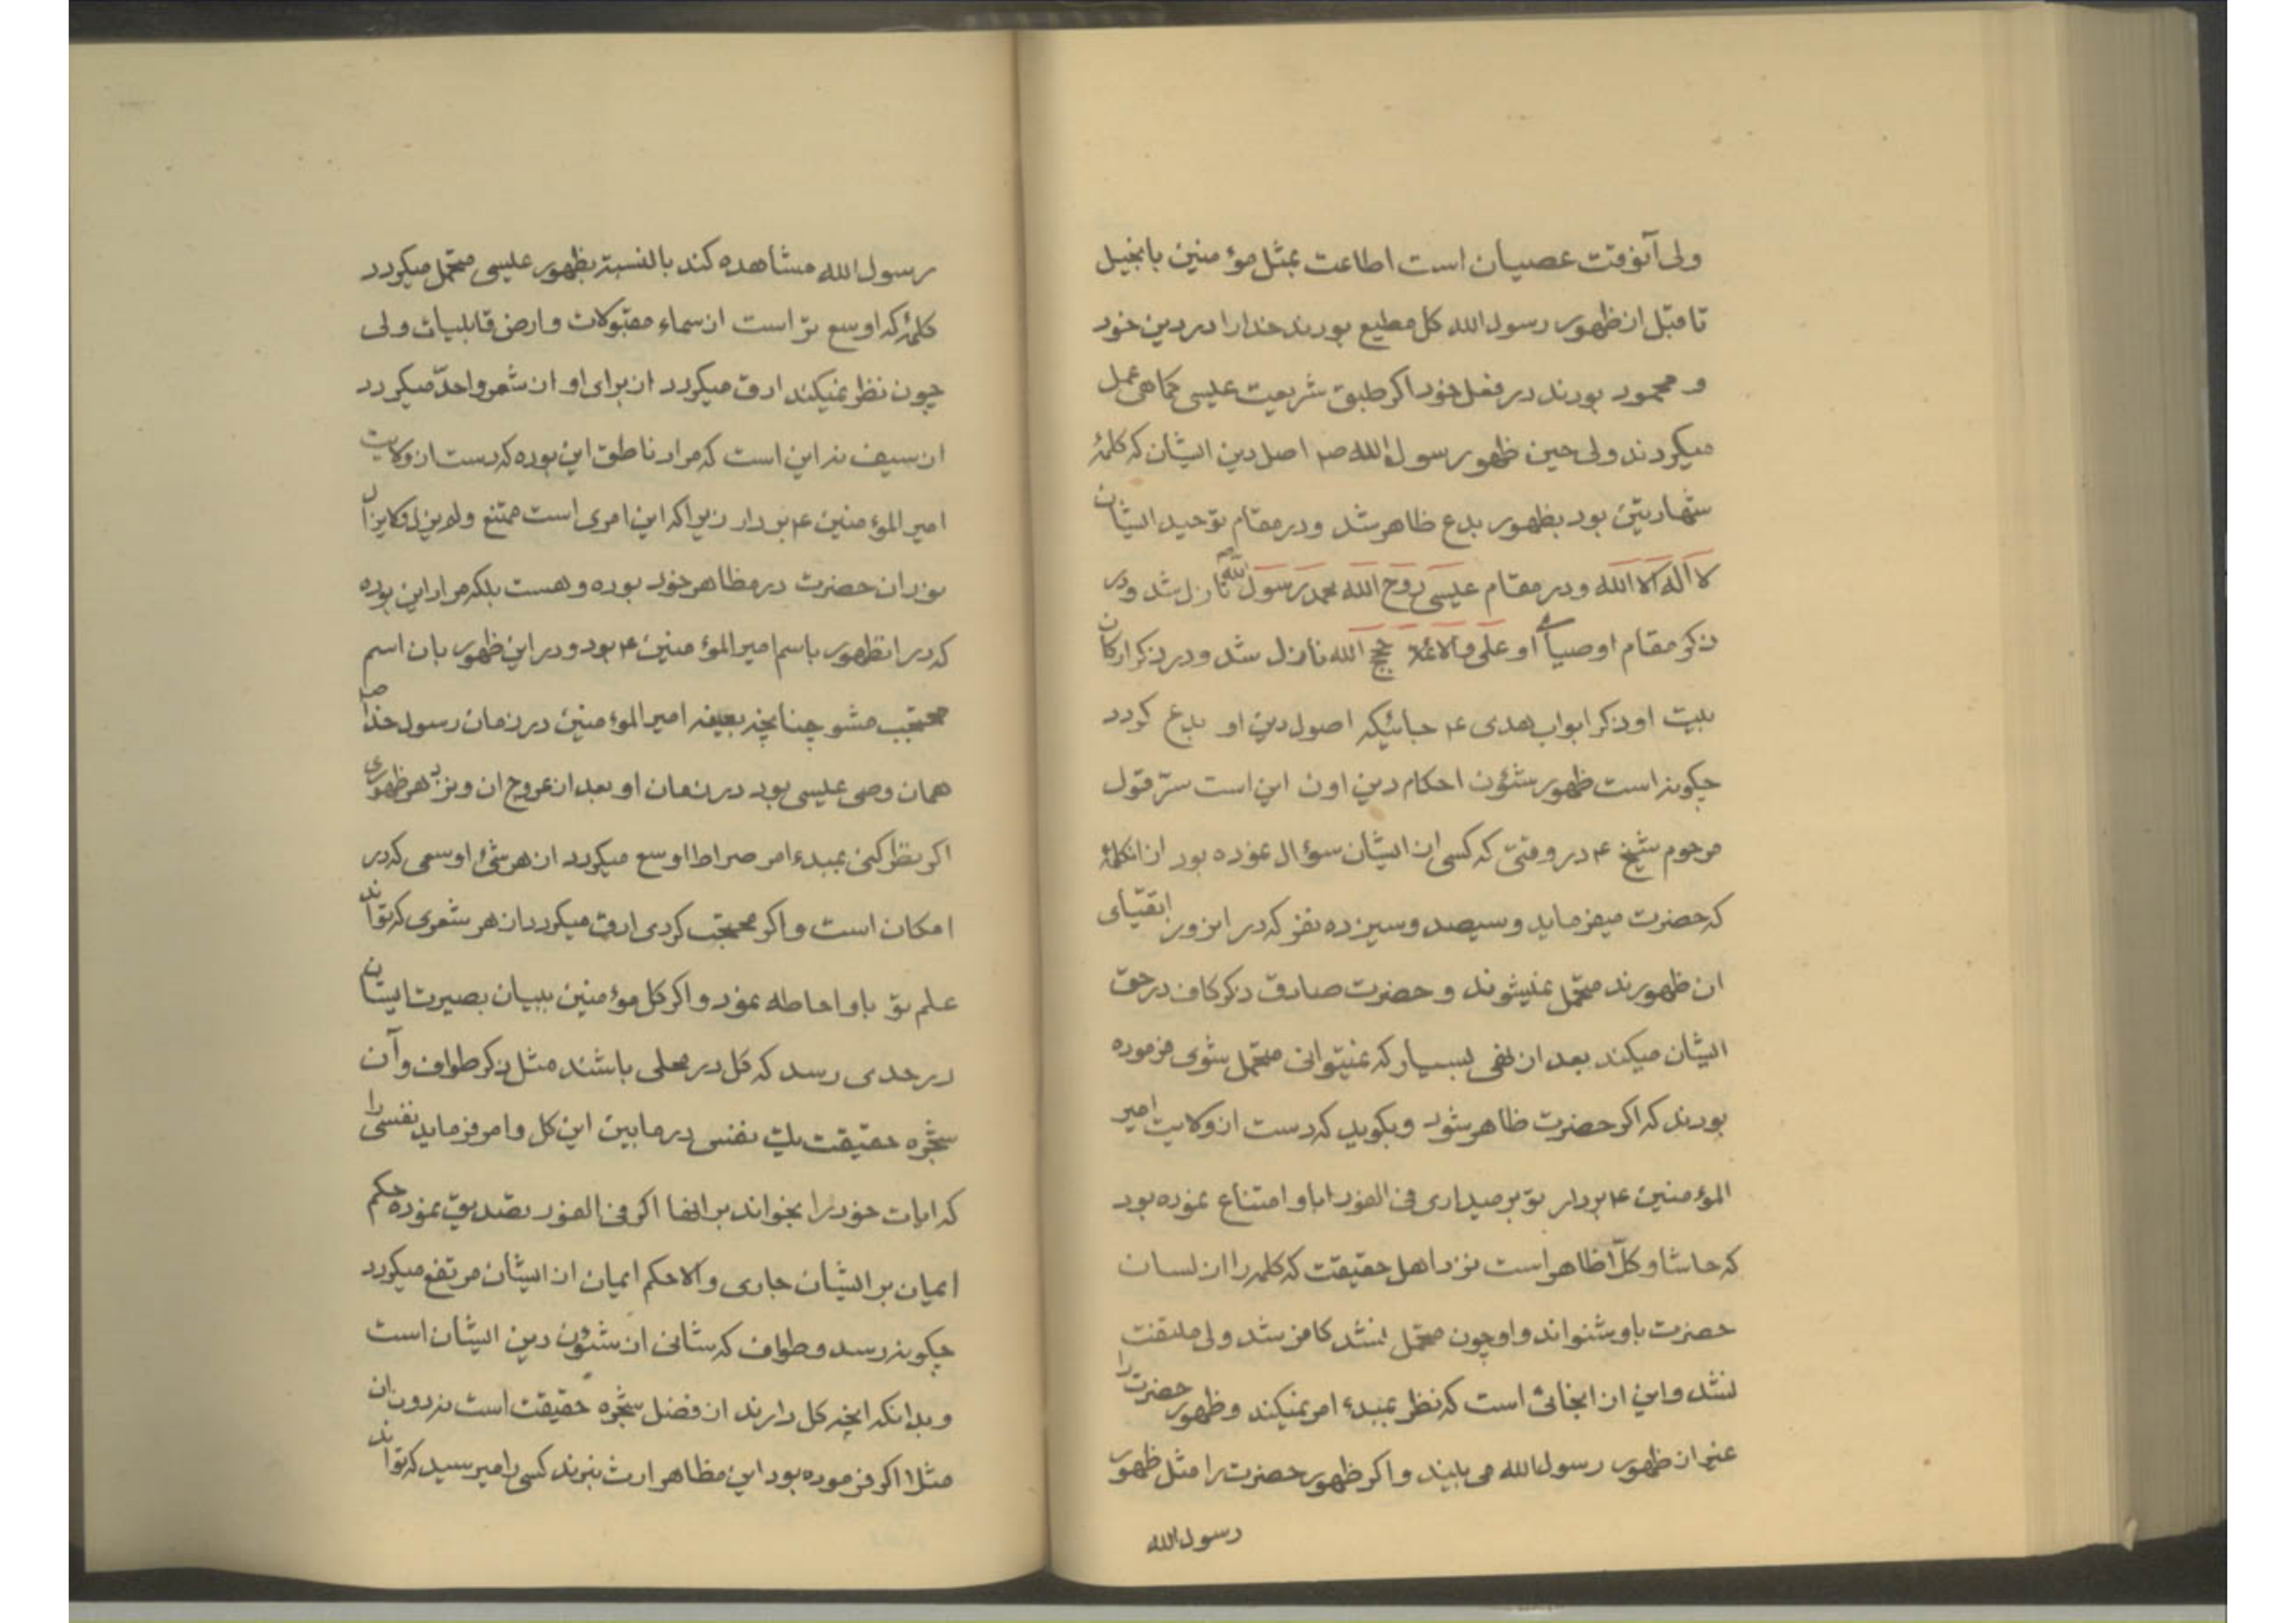 ولی آنوقت عصیان است اطاعت بمثل مؤمنین بانجیل
تا قبل از ظهور رسول الله کل مطیع بودند خدا را در دین خود
و محمود بودند در فعل خود اکر طبق شریعت عیسی کما هی عمل
میکردند ولی حین ظهور رسول الله ص اصل دین ایشان که کلمهٔ
شهادتین بود بظهور بدع ظاهر شد و در مقام توحید ایشان
لا اله الا الله و در مقام عیسی روح الله محمد رسول الله نازل شد و در
ذکر مقام اوصیای او علی والائمة حجج الله نازل شد و در ذکر ارکان
بیت او ذکر ابواب هدی ع جائیکه اصول دین او بدع کردد
چکونه است ظهور شئون احکام دین اون این است سرّ قول
مرحوم شیخ ع در وقتی که کسی از ایشان سؤال نموده بود از انکلمهٔ
که حضرت میفرماید و سیصد و سیزده نفر که در انروز اتقیای
ان ظهورند متحمل نمیشوند و حضرت صادق ذکر کاف در حق
ایشان میکند بعد از نفی بسیار که نمیتوانی متحمل شوی فرموده
بودند که اکر حضرت ظاهر شود و بکوید که دست از ولایت امیر
المؤمنین ع بردار تو برمیداری فی الفور ابا و امتناع نموده بود
که حاشا و کلّا ظاهر است نزد اهل حقیقت که کلمه را از لسان
حضرت باو شنواند و او چون متحمل نشد کافر شد ولی ملتفت
نشد و این از انجائی است که نظر بمبدء امر نمیکند و ظهور حضرت را
غیر از ظهور رسول الله می بیند و اکر ظهور حضرت را مثل ظهور
رسول الله
رسول الله مشاهده کند بالنسبة بظهور عیسی متحمل میکردد
کلمهٔ که اوسع تر است از سماء مقبولات و ارض قابلیات ولی
چون نظر نمیکند ادق میکردد از برای او از شعر و احدّ میکردد
از سیف نه این است که مراد ناطق این بوده که دست از ولایت
امیر المؤمنین ع بردار زیرا که این امری است ممتنع ولم یزل ولایزال
بودان حضرت در مظاهر خود بوده و هست بلکه مراد این بوده
که در انظهور باسم امیر المؤمنین ع بود و در این ظهور بان اسم
محتجب مشو چنانچه بعینه امیر المؤمنین در زمان رسول خدا ص
همان وصی عیسی بود در زمان او بعد از عروج ان و نزد هر ظهوری
اکر نظر کنی بمبدء امر صراط اوسع میکردد از هر شئ اوسعی که در
امکان است و اکر محتجب کردی ادق میکردد از هر شعری که تواند
علم تو باو احاطه نمود و اکر کل مؤمنین ببیان بصیرت ایشان
در حدی رسد که کل در محلی باشند مثل ذکر طواف و آن
شجره حقیقت یک نفس در مابین این کل و امر فرماید نفسی را
که ایات خود را بخواند بر انها اکر فی الفور تصدیق نموده حکم
ایمان بر ایشان جاری والا حکم ایمان از ایشان مرتفع میکردد
چکونه رسد و طواف که شانی از شئون دین ایشان است
و بدانکه انچه کل دارند از فضل شجره حقیقت است نه دون ان
مثلا اکر فرموده بود این مظاهر ارث نبرند کسی را میرسید که تواند